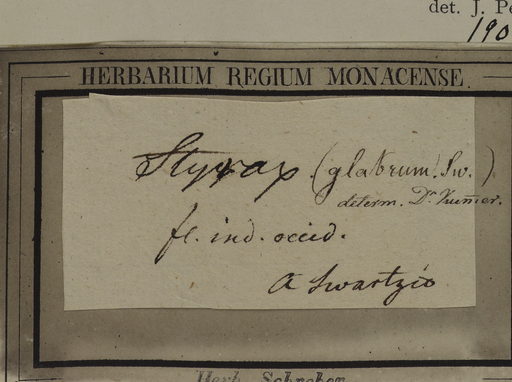 det. J. Pe
190
HERBARIUM REGIUM MONACENSE.
Styrax (glabrum! Sw.)
determ. Dr. Kummer.
fl. ind. occid.
A Swartzio
Herb. Schreber